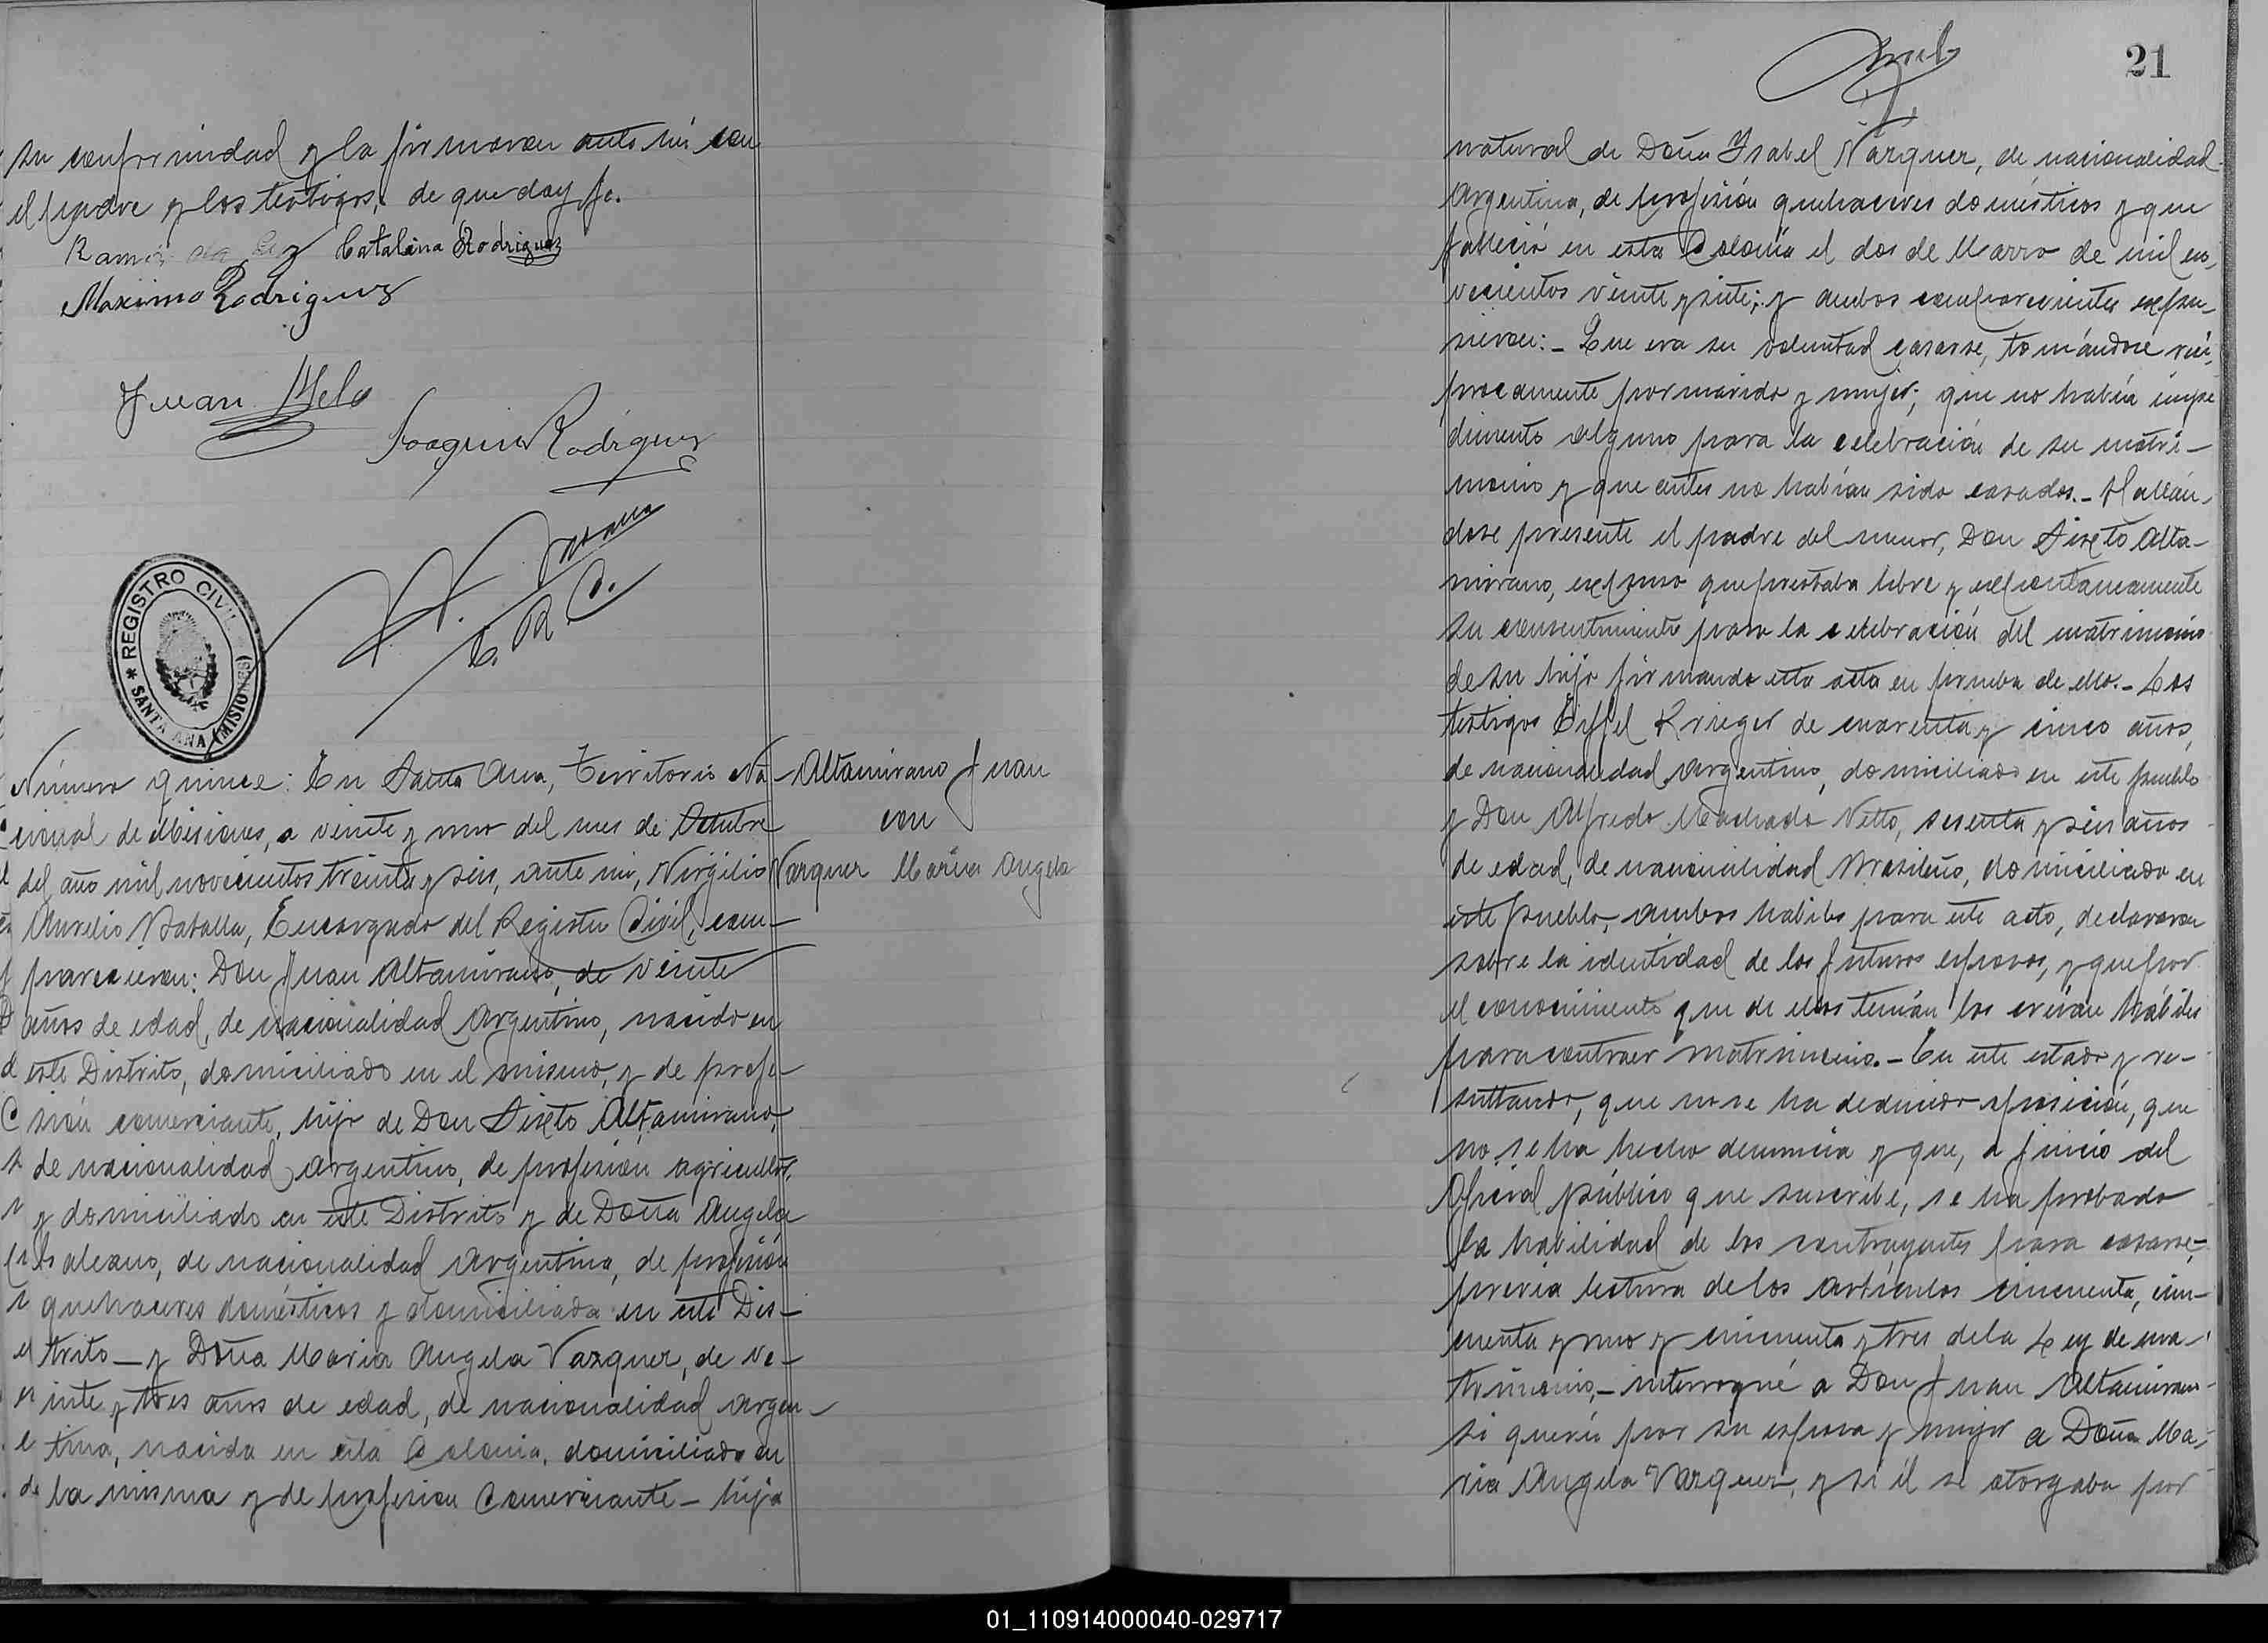 su conformidad y la firmaron ante mí con
el padre y los testigos, de que doy fe.
Catalina Rodriguez
Maximo Rodriguez
Juan Melo
Joaquin Rodriguez
E. R. C.
* REGISTRO CIVIL *
SANTA ANA (MISIONES)
Número quince: En Santa Ana, Territorio Na-
cional de Misiones, a veinte y uno del mes de Octubre
del año mil novecientos treinta y seis, ante mi, Virgilio
Aurelio Basalla, Encargado del Registro Civil, com-
parecieron: Don Juan Altamirano, de veinte
años de edad, de nacionalidad Argentino, nacido en
este Distrito, domiciliado en el mismo, y de profe-
sión comerciante, hijo de Don Sixto Altamirano,
de nacionalidad argentino, de profesión agricultor,
y domiciliado en este Distrito y de Doña Angela
de nacionalidad Argentina, de profesión
quehaceres domésticos y domiciliada en este Dis-
trito — y Doña Maria Angela Vazquez, de ve-
inte y tres años de edad, de nacionalidad Argen-
tina, nacida en esta Colonia, domiciliada en
la misma y de profesion Comerciante — hija
Altamirano Juan
con
Vazquez Maria Angela
21
natural de Doña Isabel Vázquez, de nacionalidad
Argentina, de profesión quehaceres domésticos y que
falleció en esta Colonia el dos de Marzo de mil no-
vecientos veinte y siete; y ambos comparecientes expu-
sieron: - Que era su voluntad casarse, tomándose reci-
procamente por marido y mujer; que no había impe
dimento alguno para la celebración de su matri-
monio y que antes no habían sido casados. - Hallán-
dose presente el padre del menor, Don Sixto Alta-
mirano, expuso que prestaba libre y expontaneamente
su consentimiento para la celebración del matrimonio
de su hijo firmando esta acta en prueba de ello. - Los
testigos Eiffel Krieger de cuarenta y cinco años,
de nacionalidad Argentino, domiciliado en este pueblo
y Don Alfredo Machado Netto, sesenta y seis años
de edad, de nacionalidad Brasileño, domiciliado en
este pueblo, ambos habiles para este acto, declararon
sobre la identidad de los futuros esposos, y que por
el conocimiento que de ellos tenían los creían hábiles
para contraer matrimonio. - En este estado y re-
sultando, que no se ha deducido oposición, que
no se ha hecho denuncia y que, a juicio del
Oficial público que suscribe, se ha probado
la habilidad de los contrayentes para casarse,
previa lectura de los artículos cincuenta, cin-
cuenta y uno y cincuenta y tres de la Ley de ma-
trimonio, - interrogué a Don Juan Altamirano
si quería por su esposa y mujer a Doña Ma-
ria Angela Vazquez, y si él se otorgaba por
01_110914000040-029717